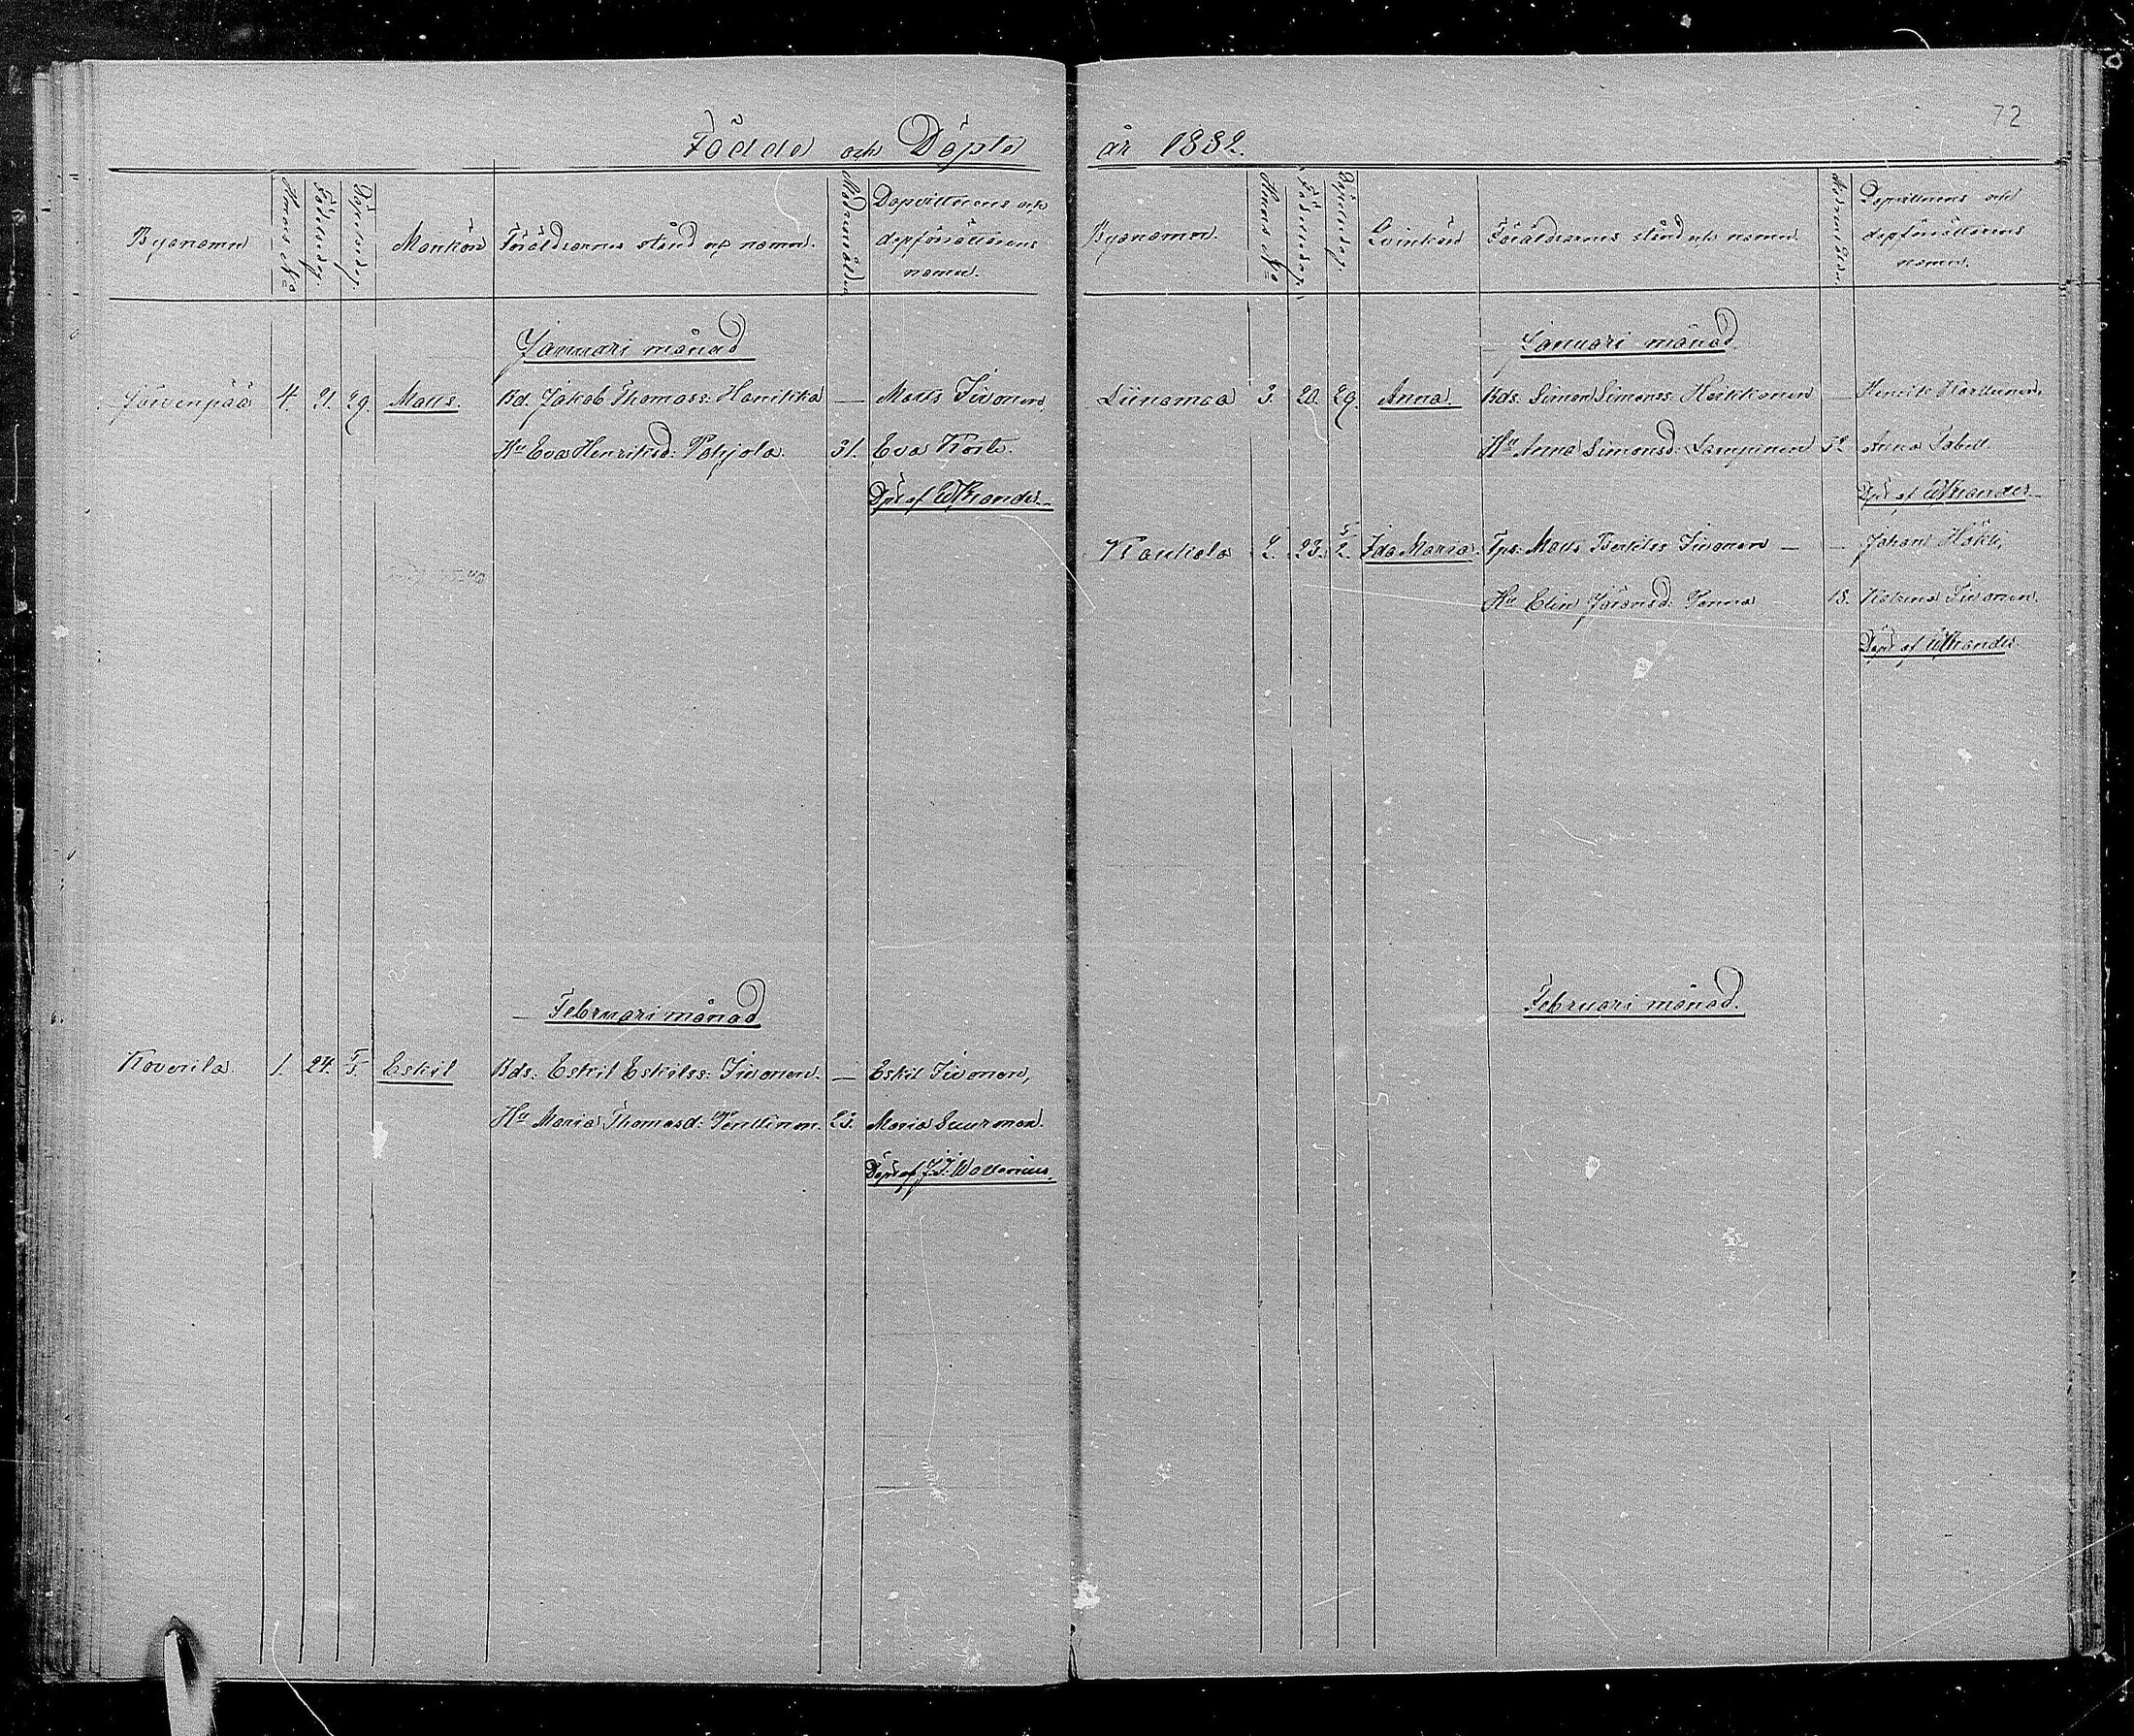 72
Födde och Döpte år 1882.
Byanamn
Hmans No
Födelsedag.
Döpelsedag.
Mankön
Föräldrarnes stånd och namn.
Modrens ålder
Dopvittnens och
dopförrättarens
namn.
Januari månad
Järvenpää 4. 21. 29. Matts. Bd. Jakob Thomass: Hanikka — Matts Sivonen,
Hu Eva Henriksd: Pohjola. 31. Eva Koste.
Döpt af W Krander.
Februari månad
Koverila. 1. 24. 5. Eskil Bds: Eskil Eskilss: Sivonen. — Eskil Sivonen,
Hu Maria Thomasd: Penttinen. 23. Maria Suurman.
Döpt af J. J. Wallenius.
Byanamn.
Hmans No
Födelsedag.
Döpelsedag.
Qvinkön
Föräldrarnes stånd och namn.
Modrens ålder.
Dopvittnens och
dopförrättarens
namn.
Januari månad.
Liinamaa 3. 20. 29. Anna Bds: Simon Simonss. Heikkonen — Henrik
Hu Anna Simonsd: Lampinen Anna
Döpt af W Krander.
Kaukola 2. 23. 2. Ida Maria. Tps: Matts Sivonen — — Johan
Hu Elin Göransd: 18. Sivonen.
Döpt af W Krander.
Februari månad.